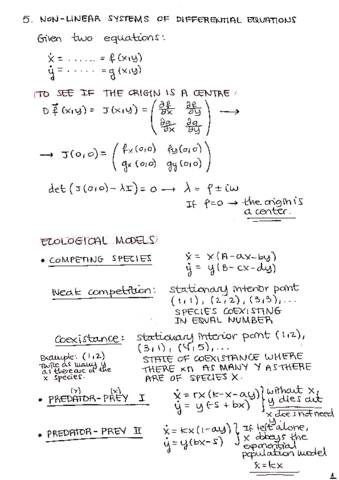 5. NON-LINEAR SYSTEMS OF DIFFERENTIAL EQUATIONS
Given two equations:
ẋ = ...... = f(x,y)
ẏ = ...... = g(x,y)
TO SEE IF THE ORIGIN IS A CENTRE:
Df⃗(x,y) = J(x,y) = (∂f/∂x ∂f/∂y ∂g/∂x ∂g/∂y) →
→ J(0,0) = (fx(0,0) fy(0,0) gx(0,0) gy(0,0))
det(J(0,0)-λI)=0 → λ = ρ ± iω
If ρ=0 → the origin is a center.
ECOLOGICAL MODELS
• COMPETING SPECIES
ẋ = x(A-ax-by)
ẏ = y(B-cx-dy)
Weak competition: stationary interior point
(1,1), (2,2), (3,3),...
SPECIES COEXISTING
IN EQUAL NUMBER
Coexistance: stationary interior point (1,2),
(3,1), (4,5)...
Example: (1,2)
twice as many y
as there are of the
x species.
STATE OF COEXISTANCE WHERE
THERE xn AS MANY Y AS THERE
ARE OF SPECIES X.
(Y) (X)
• PREDATOR-PREY I
ẋ = rx(k-x-ay)
ẏ = y(-s+bx)
without x,
y dies out
x does not need y
• PREDATOR-PREY II
ẋ = kx(1-ay)
ẏ = y(bx-s)
If left alone,
x obeys the
exponential
population model
ẋ=kx
1